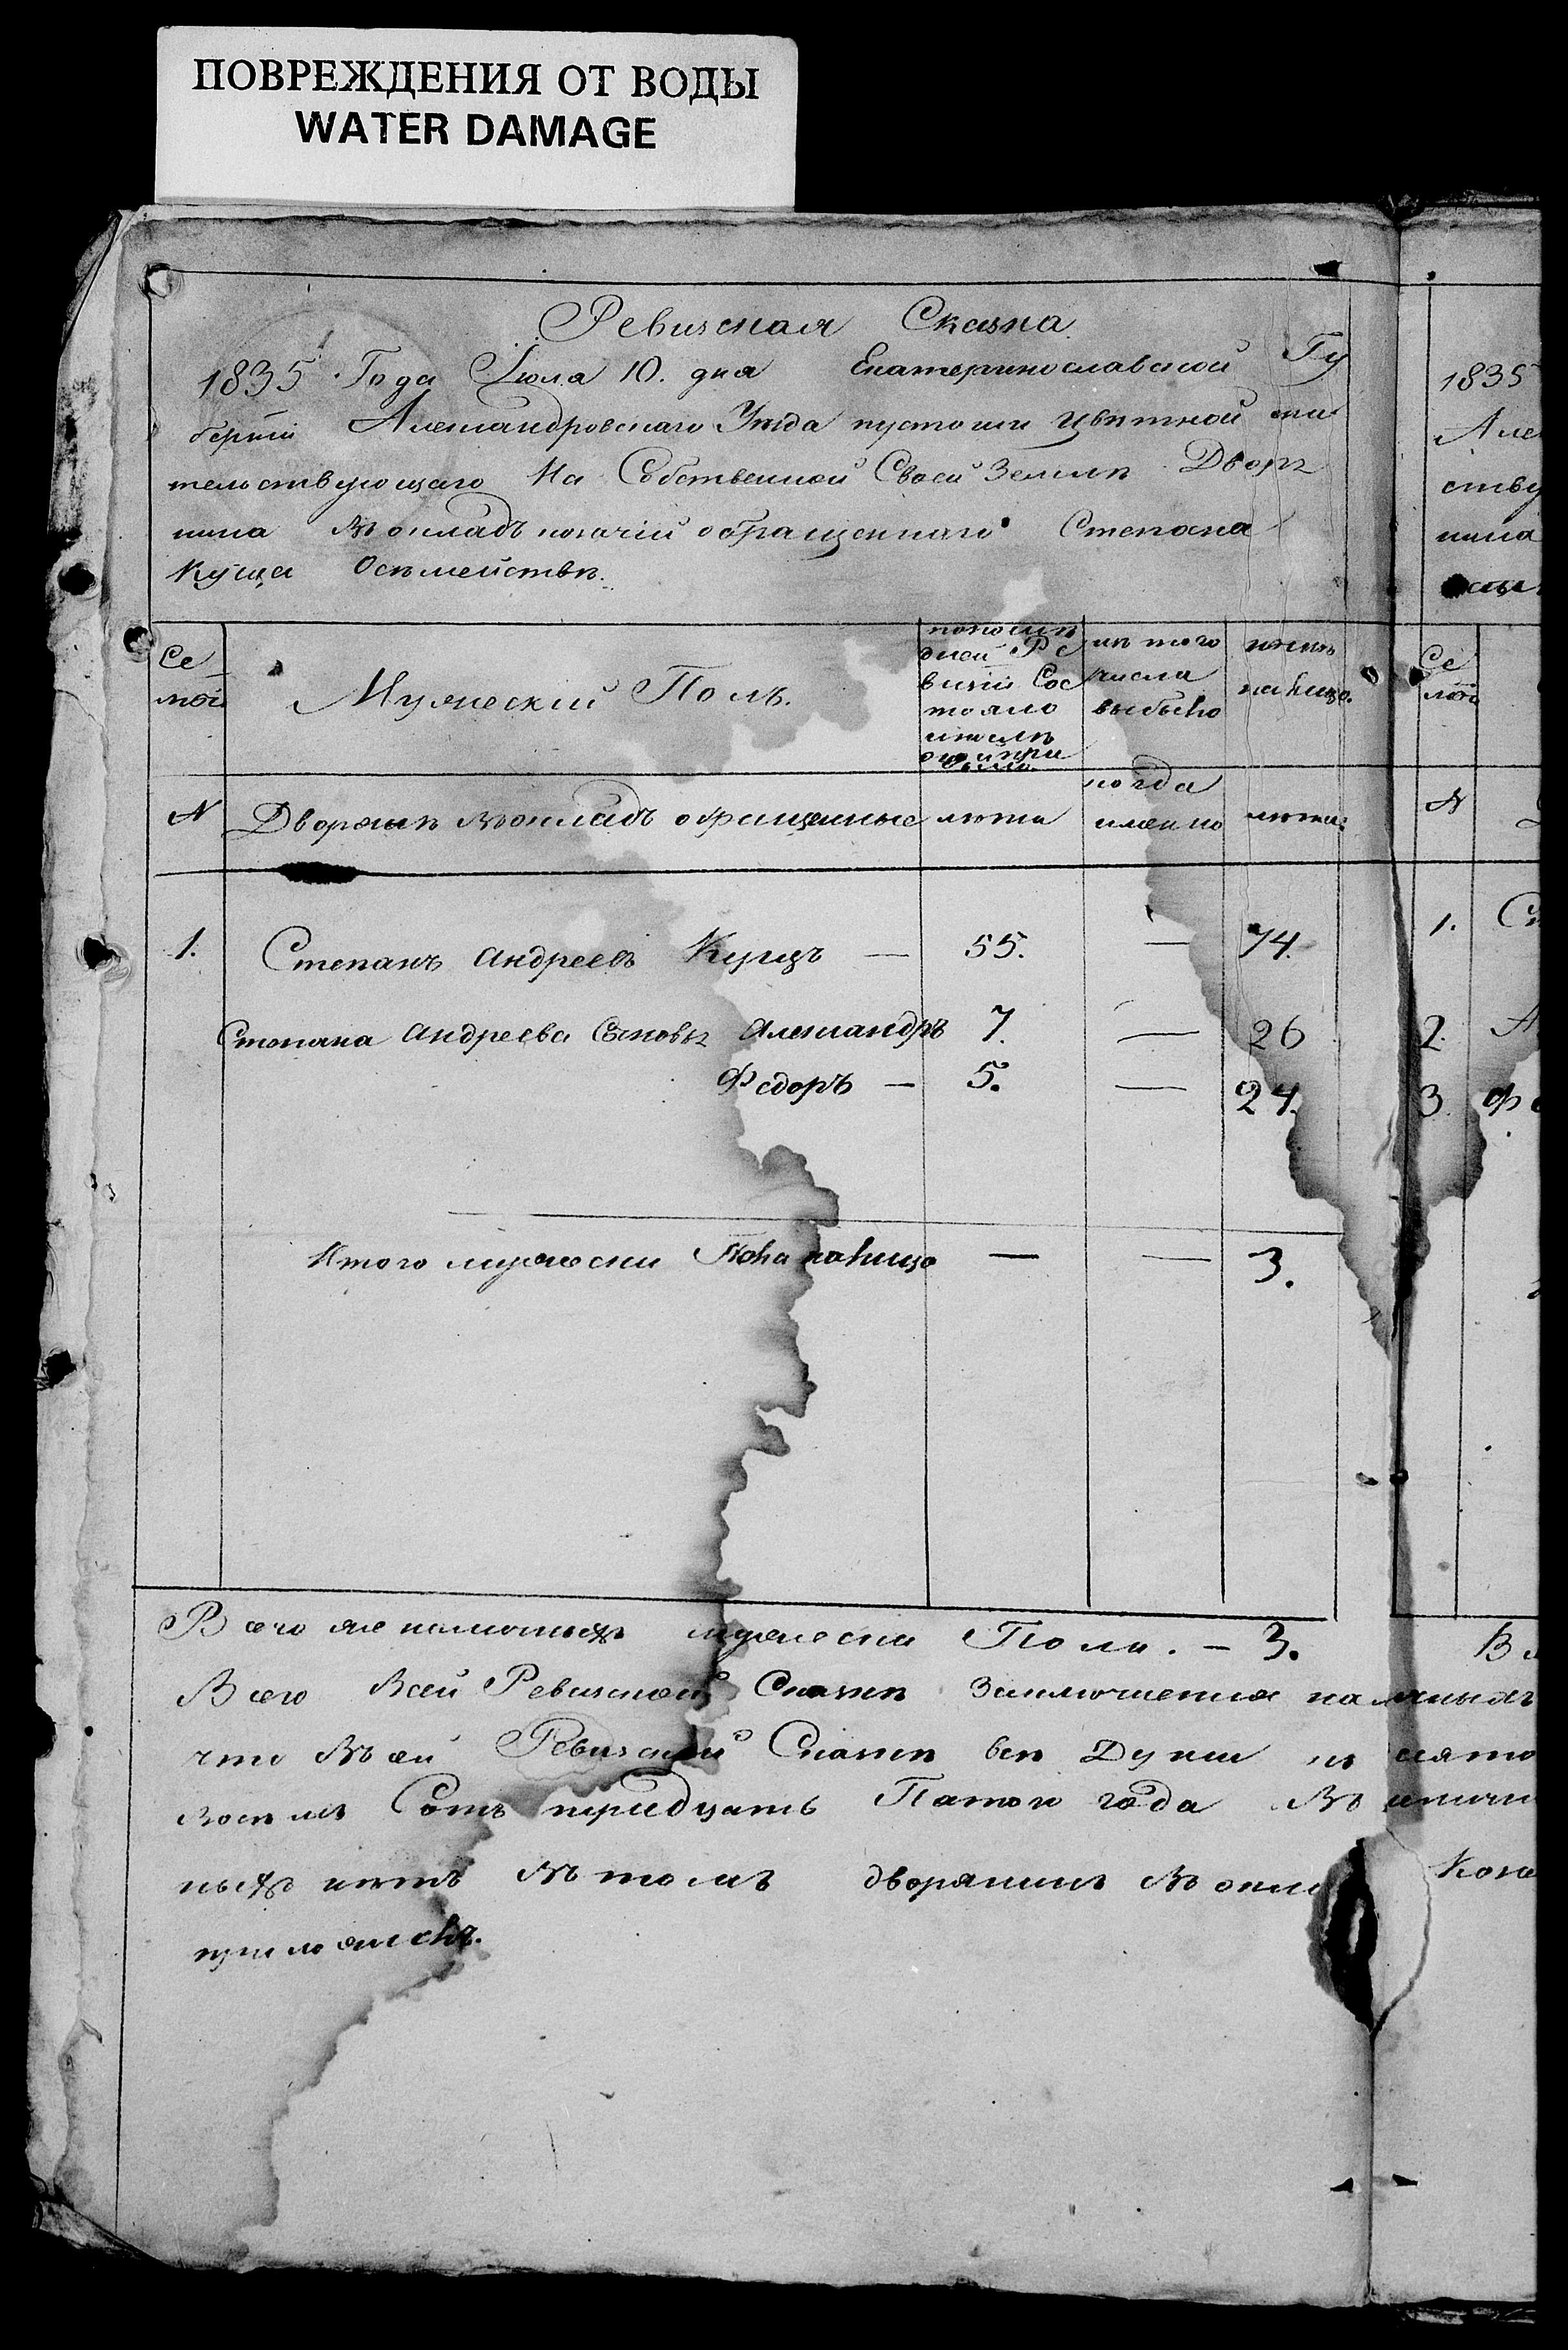 ПОВРЕЖДЕНИЯ ОТ ВОДЫ
WATER DAMAGE
Ревизская Сказка
1835 Года Июля 10. дня Екатеринославской Гу
бернии Александровскаго Уезда пустоши Цветной жи
тельствующаго На Собственной Своей Земле Дворя
нина въ окладъ обращеннаго Степана
Куща Осемействе.
Се
мьи
Мужеский Полъ.
по после
дней Ре
визии Сос
тояло
и после
оной при
было
изъ того
числа
выбыло
ныне
на лицо.
N
Дворяне въ окладъ обращенные
лета
когда
именно
лета
1.
Степанъ Андреевъ Кущъ — 55. — 74.
Степана Андреева Сыновья Александръ 7. — 26
Федоръ — 5. — 24.
Итого мужеска Пола налицо — — 3.
Всего же наличныхъ мужеска Пола. — 3.
Всего Всей Ревизской Сказке Заключения
что въ сей Ревизской Сказке все Души
восемь Сотъ тридцать Пятого года Въ
ныхъ нетъ въ томъ дворянинъ въ окла
1835
Але
ству
нина
Се
мьи
N
1. Ст
2. А
3. Фе